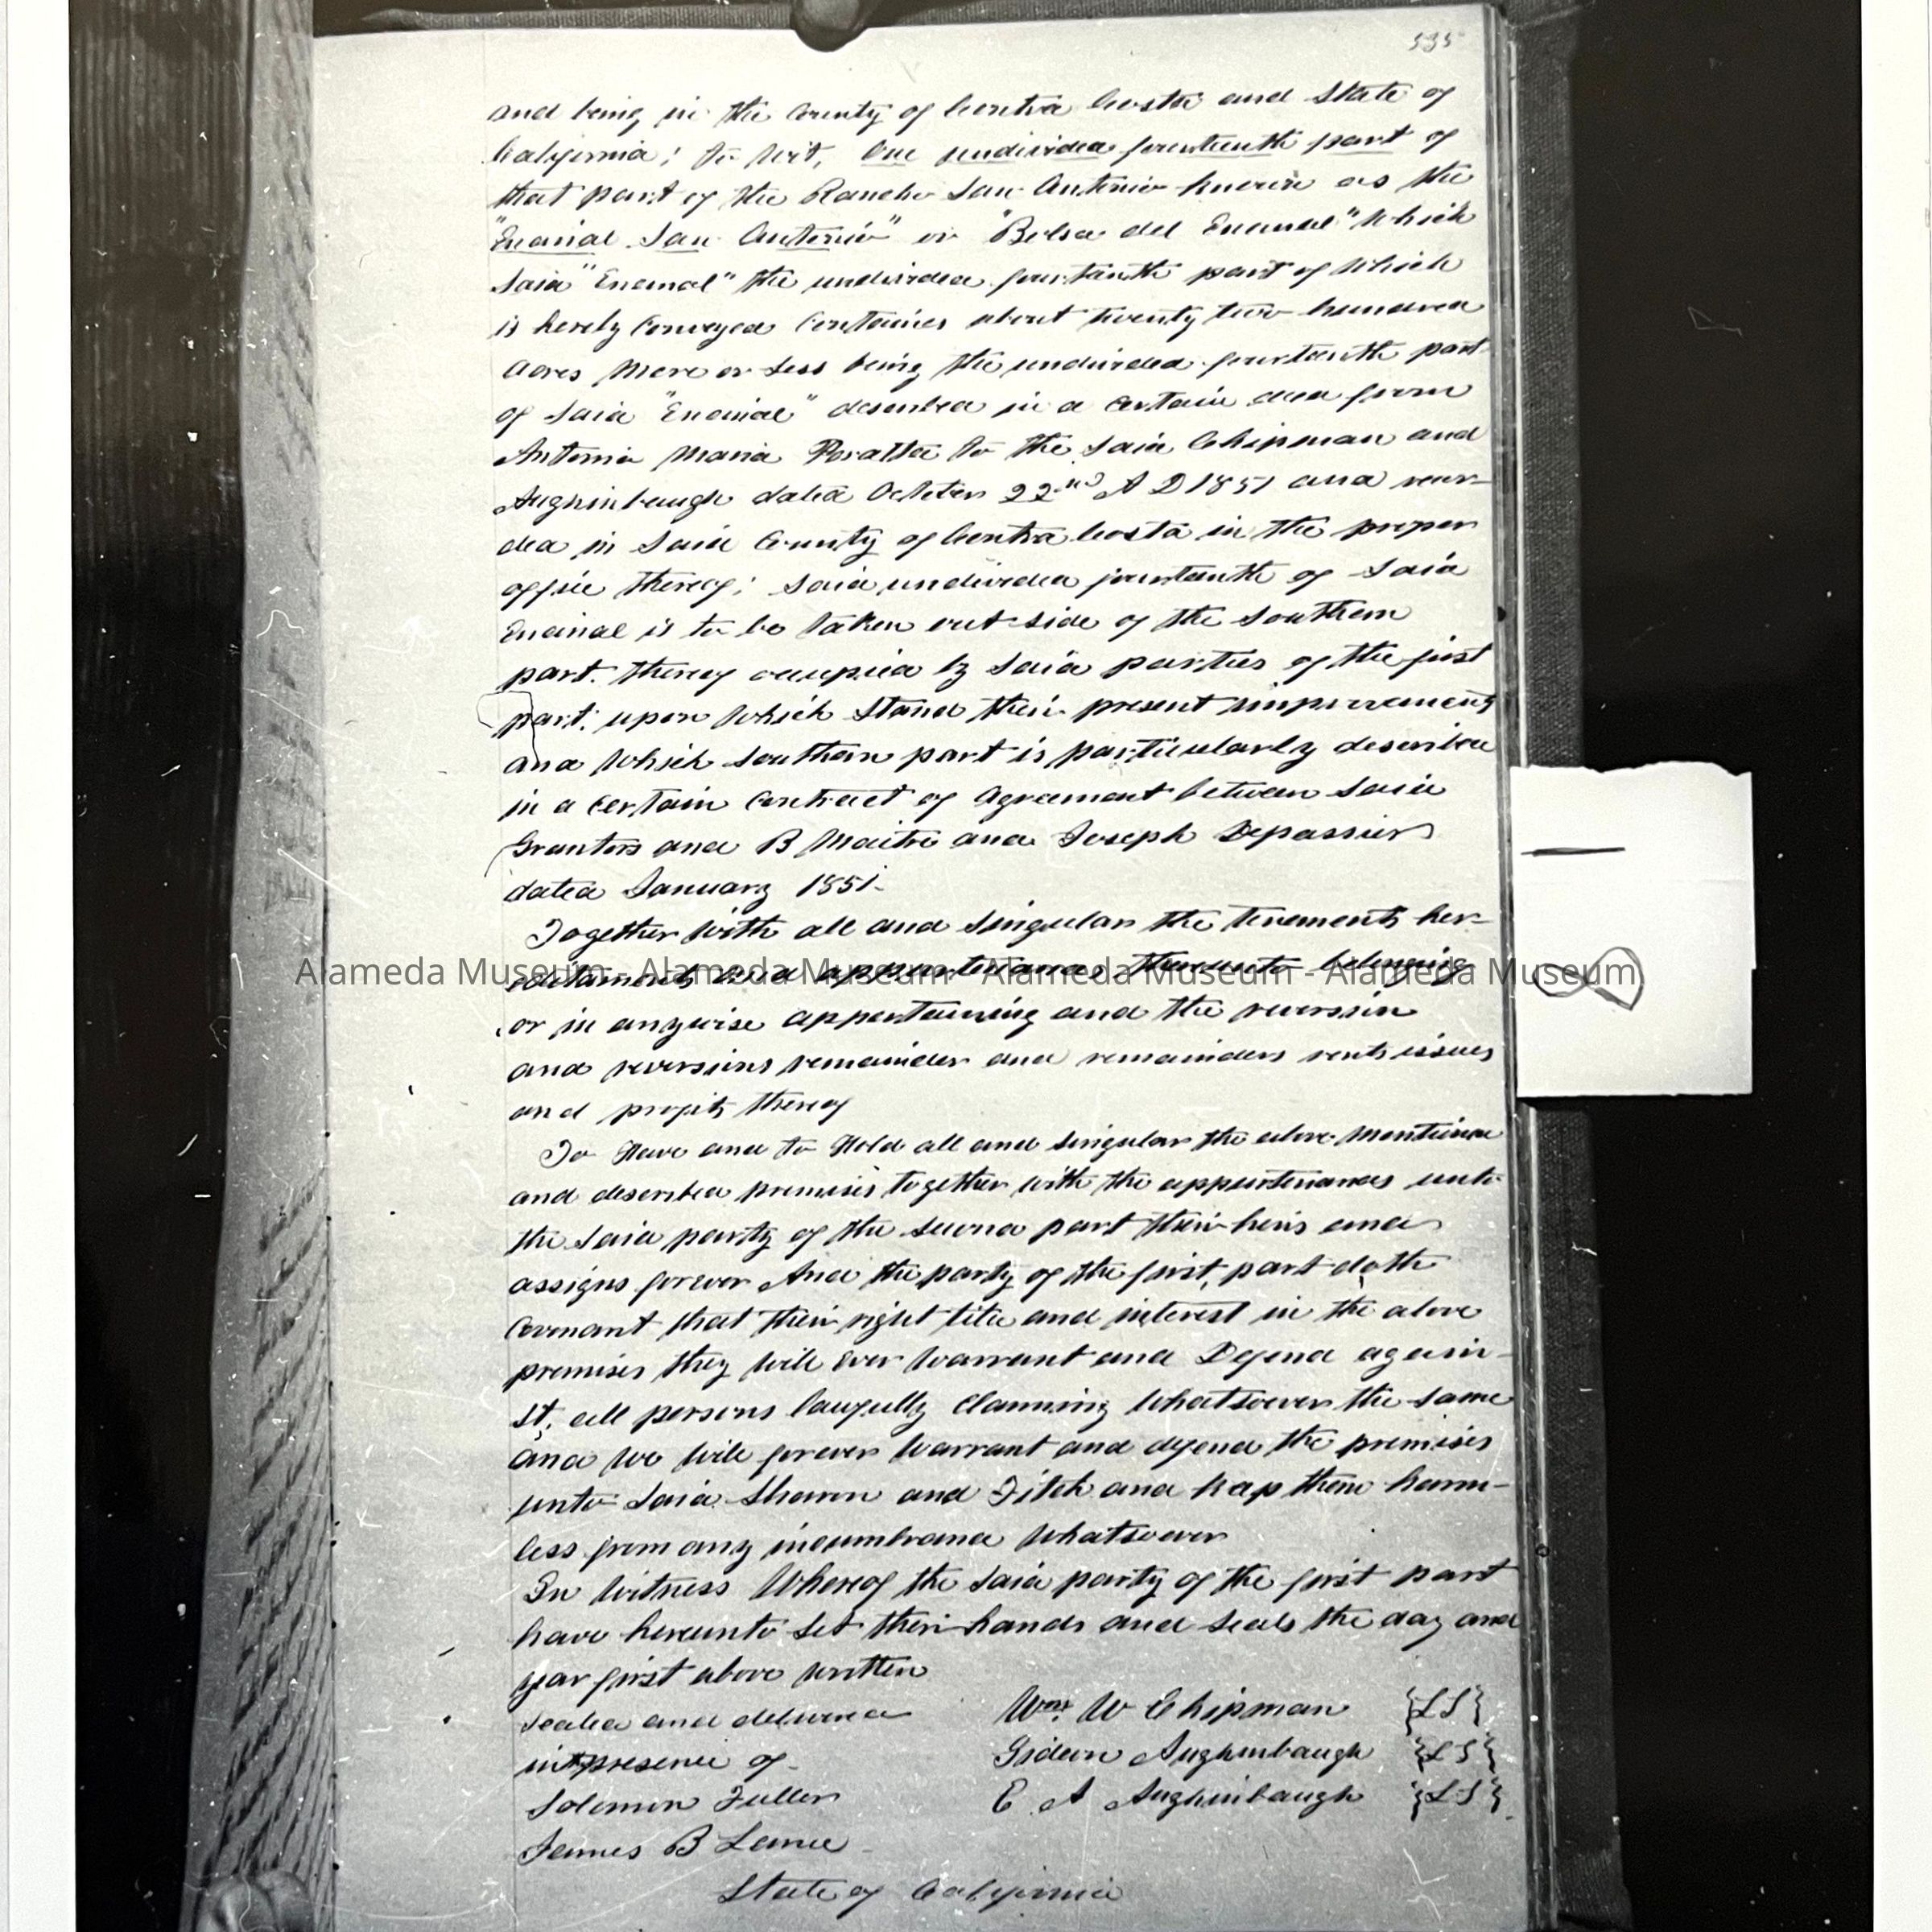 535
and being in the County of Contra Costa and State of
California; to wit, One undivided fourteenth part of
that part of the Rancho San Antonio known as the
"Encinal San Antonio" or "Bolsa del Encinal" which
said "Encinal" the undivided fourteenth part of which
is hereby conveyed containes about twenty two hundred
acres more or less being the undivided fourteenth part
of said "Encinal" described in a certain deed from
Antonio Maria Peralta to the said Chipman and
Aughinbaugh dated October 22nd A D 1851 and recor-
ded in said County of Contra Costa in the proper
office thereof; said undivided fourteenth of said
Encinal is to be taken out side of the southern
part. thereof occupied by said parties of the first
part; upon which stand their present improvements
and which southern part is particularly described
in a certain contract of Agreement between said
Grantors and B Maitre and Joseph Depassier
dated January 1851.
Together with all and singular the tenements her-
editaments and appurtenances thereunto belonging
Alameda Museum - Alameda Museum - Alameda Museum - Alameda Museum
or in anywise appertaining and the reversion
and reversions remainder and remainders rents issues
and profits thereof
To Have and to Hold all and singular the above mentioned
and described premises together with the appurtenances unto
the said party of the second part their heirs and
assigns forever And the party of the first, part doth
covenant that their right title and interest in the above
premises they will ever warrant and Defend again-
st, all persons lawfully claiming whatsoever the same
and we will forever warrant and defend the premises
unto said Sharon and Fitch and keep them harm-
less from any incumbrance whatsoever
In Witness Whereof the said party of the first part
have hereunto set their hands and seals the day and
year first above written
Sealed and delivered
in presence of
Solomon Fuller
James B Larue
Wm. W Chipman {LS}
Gideon Aughinbaugh {LS}
E A Aughinbaugh {LS}
State of California
8